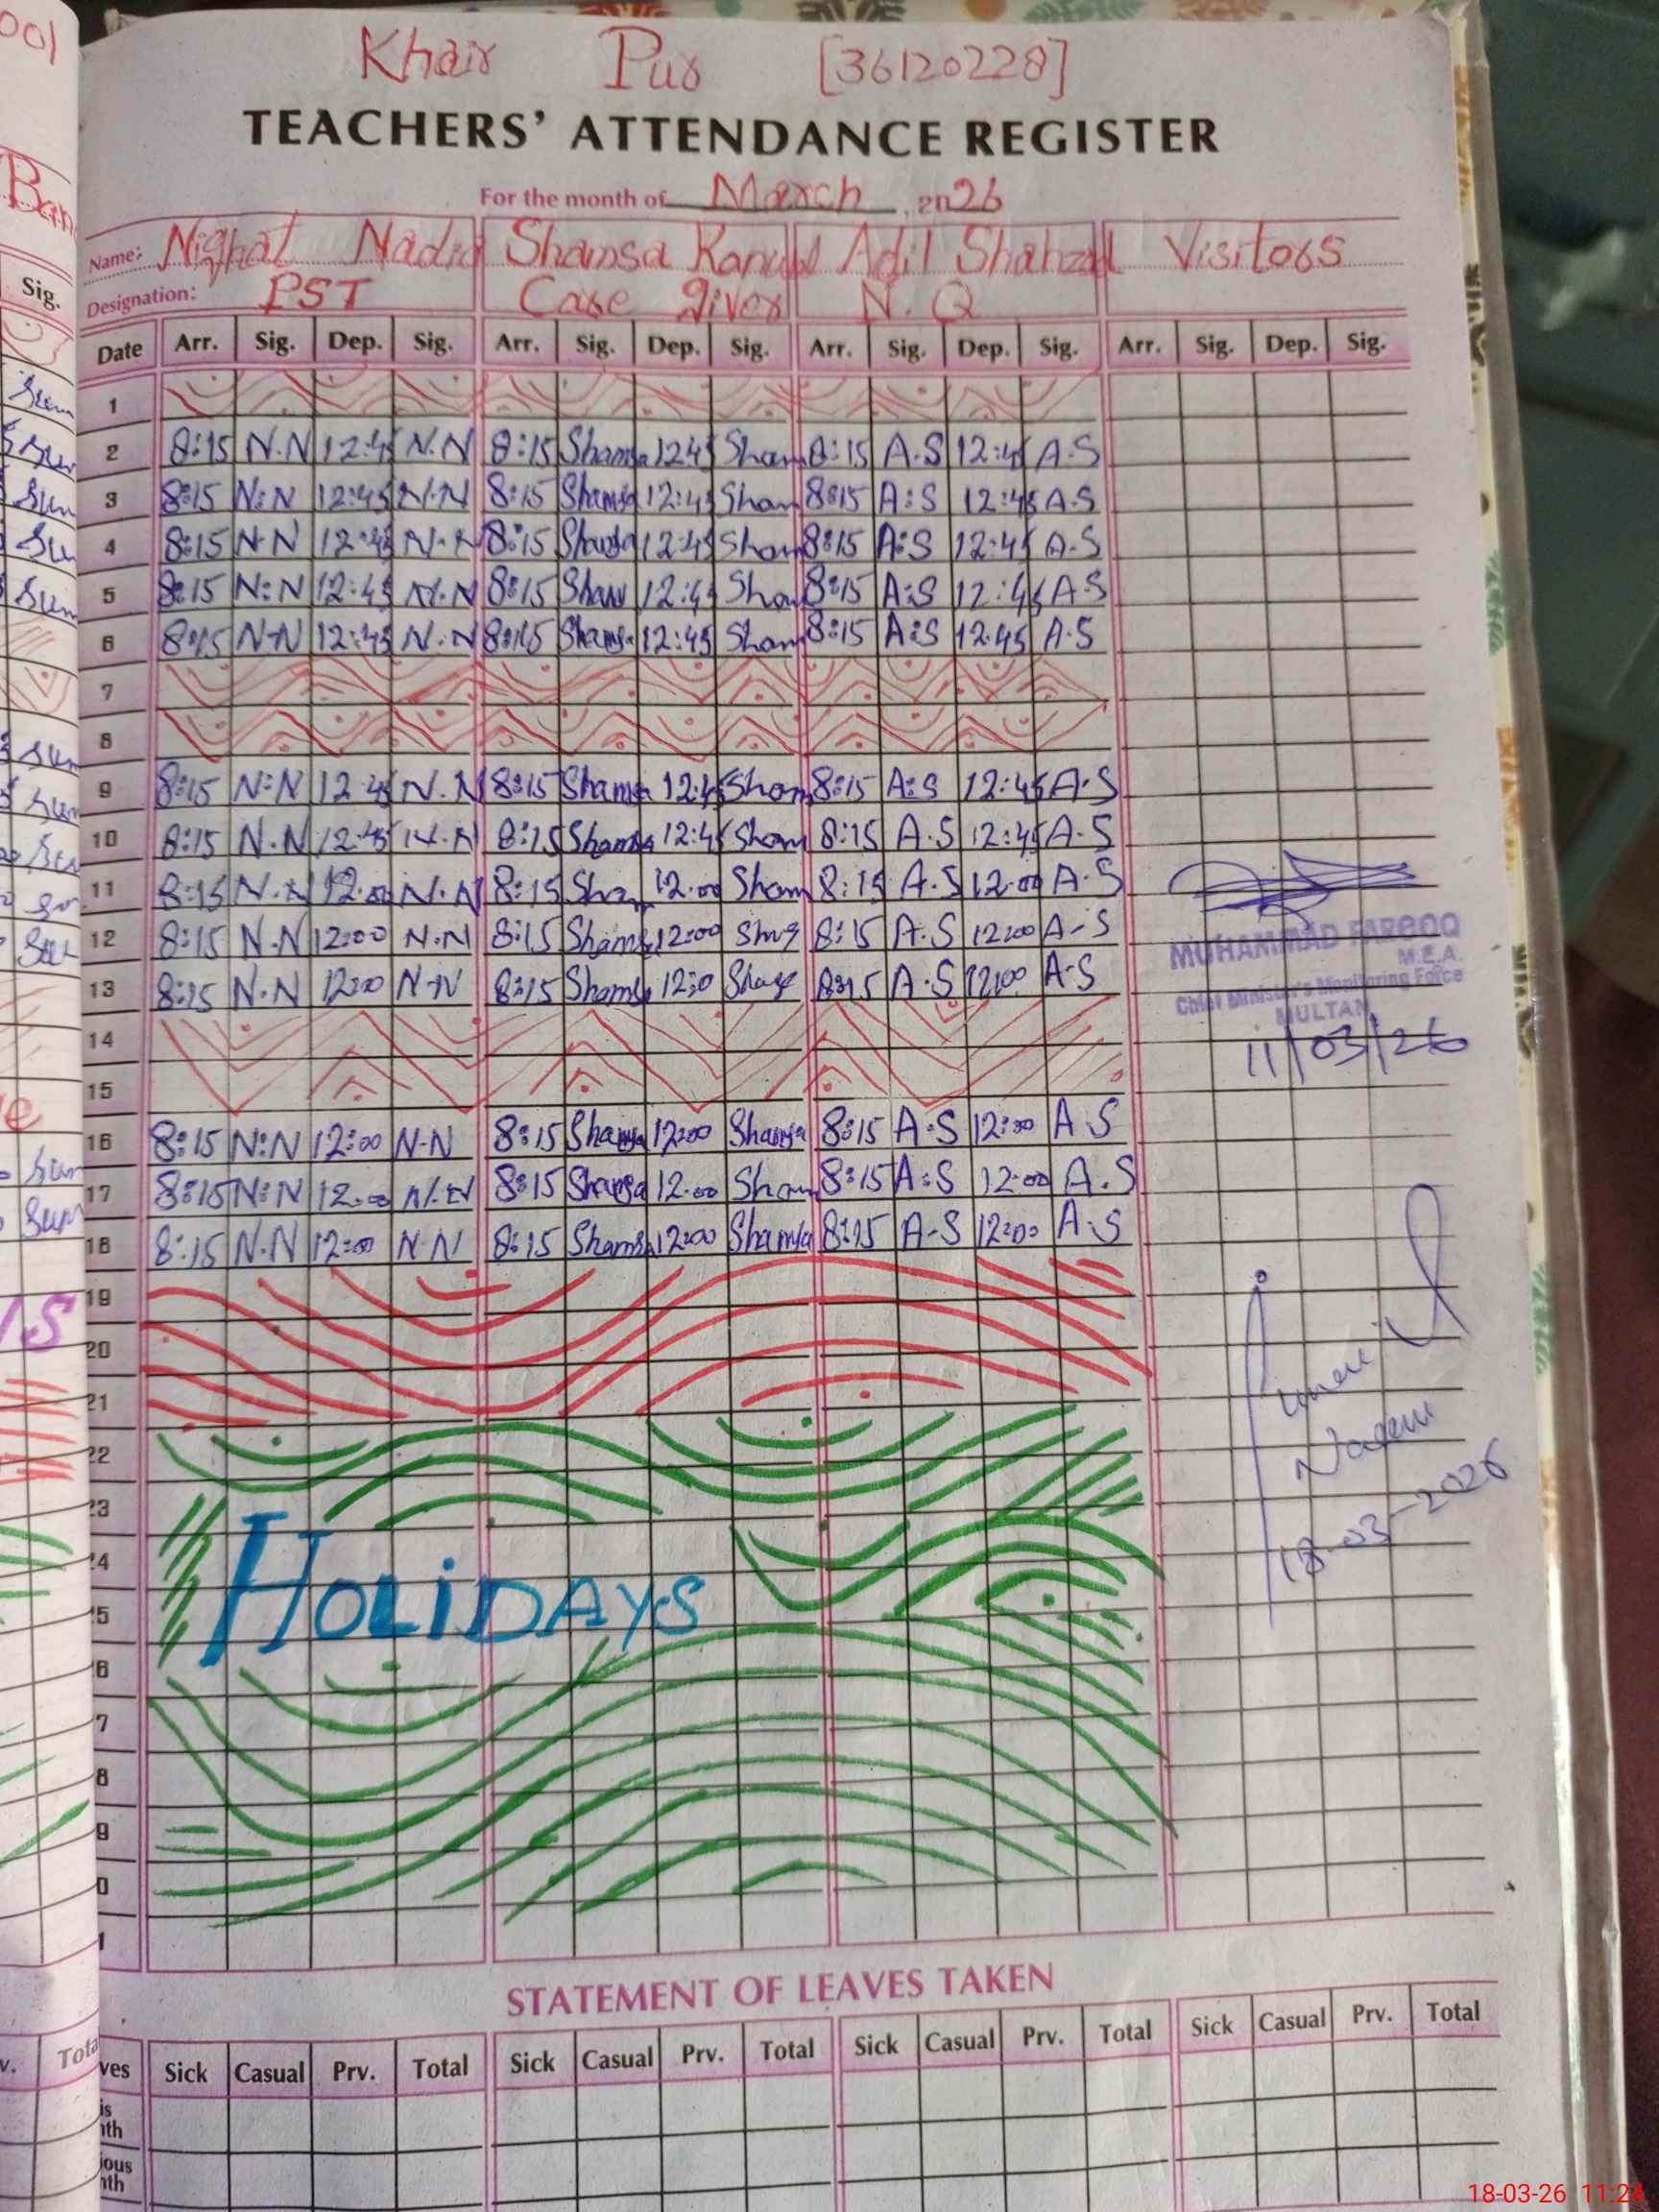 Khair Pur [36120228]
TEACHERS' ATTENDANCE REGISTER
For the month of March, 2026
Name: Nighat Nadia Shamsa Kanwal Adil Shahzad Visitors
Designation: PST Care giver N.Q
Date Arr. Sig. Dep. Sig. Arr. Sig. Dep. Sig. Arr. Sig. Dep. Sig. Arr. Sig. Dep. Sig.
1
2 8:15 N.N 12:45 N.N 8:15 Shamsa 1245 Sham 8:15 A.S 12:45 A.S
3 8:15 N:N 12:45 N.N 8:15 Shamsa 12:45 Sham 8:15 A:S 12:45 A.S
4 8:15 N.N 12:45 N.N 8:15 Shamsa 12:45 Sham 8:15 A:S 12:45 A.S
5 8:15 N:N 12:45 N.N 8:15 Sham 12:45 Sham 8:15 A:S 12:45 A.S
6 8:15 N-N 12:45 N.N 8:15 Shamsa 12:45 Sham 8:15 A:S 12.45 A.S
7
8
9 8:15 N:N 12:45 N.N 8:15 Shamsa 12:45 Sham 8:15 A:S 12:45 A.S
10 8:15 N.N 12:45 N.N 8:15 Shamsa 12:45 Sham 8:15 A.S 12:45 A.S
11 8:15 N.N 12:00 N.N 8:15 Sham 12.00 Sham 8:15 A.S 12:00 A.S
12 8:15 N.N 12:00 N.N 8:15 Shamsa 12:00 8:15 A.S 12:00 A-S
13 8:15 N.N 12:00 N-N 8:15 Shamsa 12:0 8:15 A.S 12:00 A-S
MUHAMMAD FAROOQ
M.E.A.
Chief Minister's Monitoring Force
MULTAN
11/03/26
14
15
16 8:15 N:N 12:00 N-N 8:15 Shamsa 12:00 Shamsa 8:15 A.S 12:00 A.S
17 8:15 N:N 12:00 N.N 8:15 Shamsa 12.00 Sham 8:15 A:S 12:00 A.S
18 8:15 N.N 12:00 N.N 8:15 Shamsa 12:00 Shamsa 8:15 A-S 12:00 A.S
19
20
21
22
23
24
25
HOLiDAYS
18-03-2026
6
7
8
9
0
1
STATEMENT OF LEAVES TAKEN
ves Sick Casual Prv. Total Sick Casual Prv. Total Sick Casual Prv. Total Sick Casual Prv. Total
is
nth
ious
nth
18-03-26 11:24